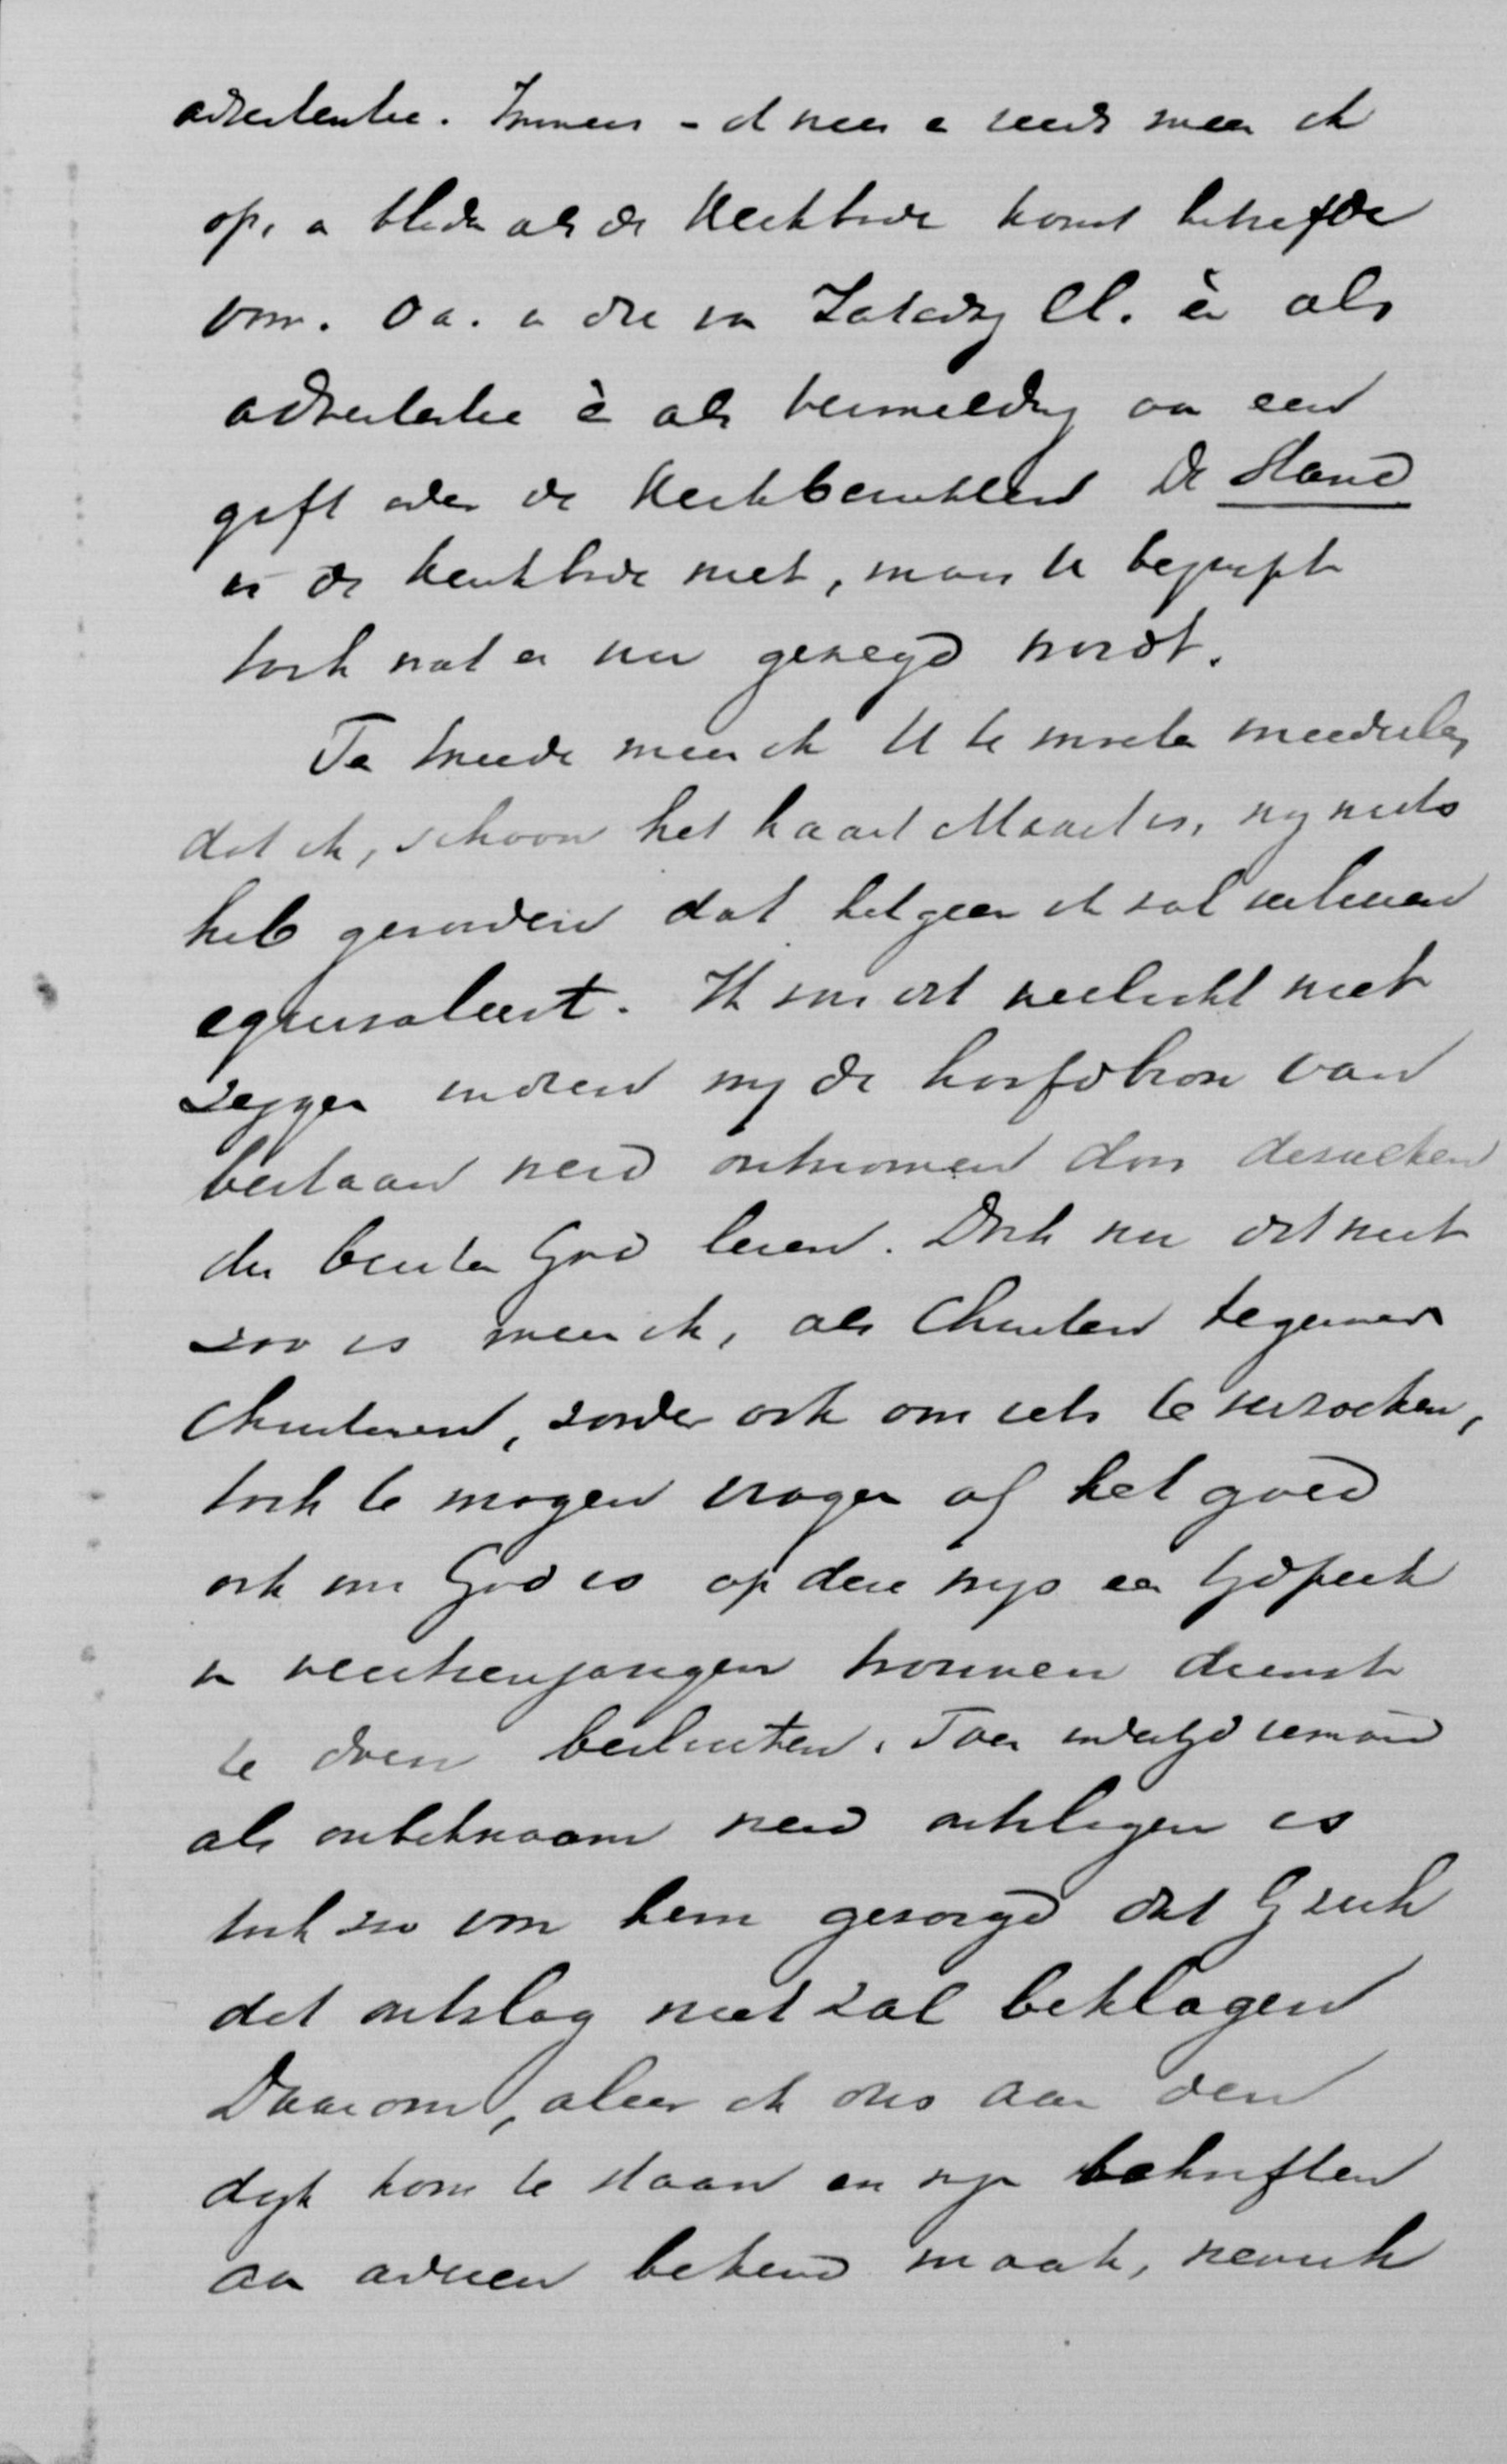 advertentie. Immers - et neen e reeds meen ik
op, a bladen als de Kerkbode komt betrefde
voor. O a. in die van Zaterdag ll. èn als
advertentie è als vermelding van een
gift onder de Kerkberichten De Stand
is de Kerkbode niet, maar U begrijpt
toch wat er mee gezegd wordt.
Te tweede meen ik U te moeten meedeelen
dat ik, schoon het haast Maart is, nog niets
heb gevonden dat hetgeen ik zal verliezen
equivaleert. Ik zou dit wellicht niet
zeggen indien mij de hoofdbron van
bestaan werd ontnomen door dezulken
die buiten God leven. Doch nu dit niet
zoo is meen ik, als Christen tegenover
Christenen, zonder ook om iets te verzoeken,
toch te mogen vragen of het goed
ook voor God is op deze wijs een tijdperk
van veertienjarigen trouwen dienst
te doen besluiten. Toen indertijd iemand
als onbekwaam werd ontslagen is
toch zoo voor hem gezorgd dat hij zich
dat ontslag niet zal beklagen
Daarom, aleer ik dus aan den
dijk kom te staan en mijn bekriften
aan anderen bekend maak, neem ik